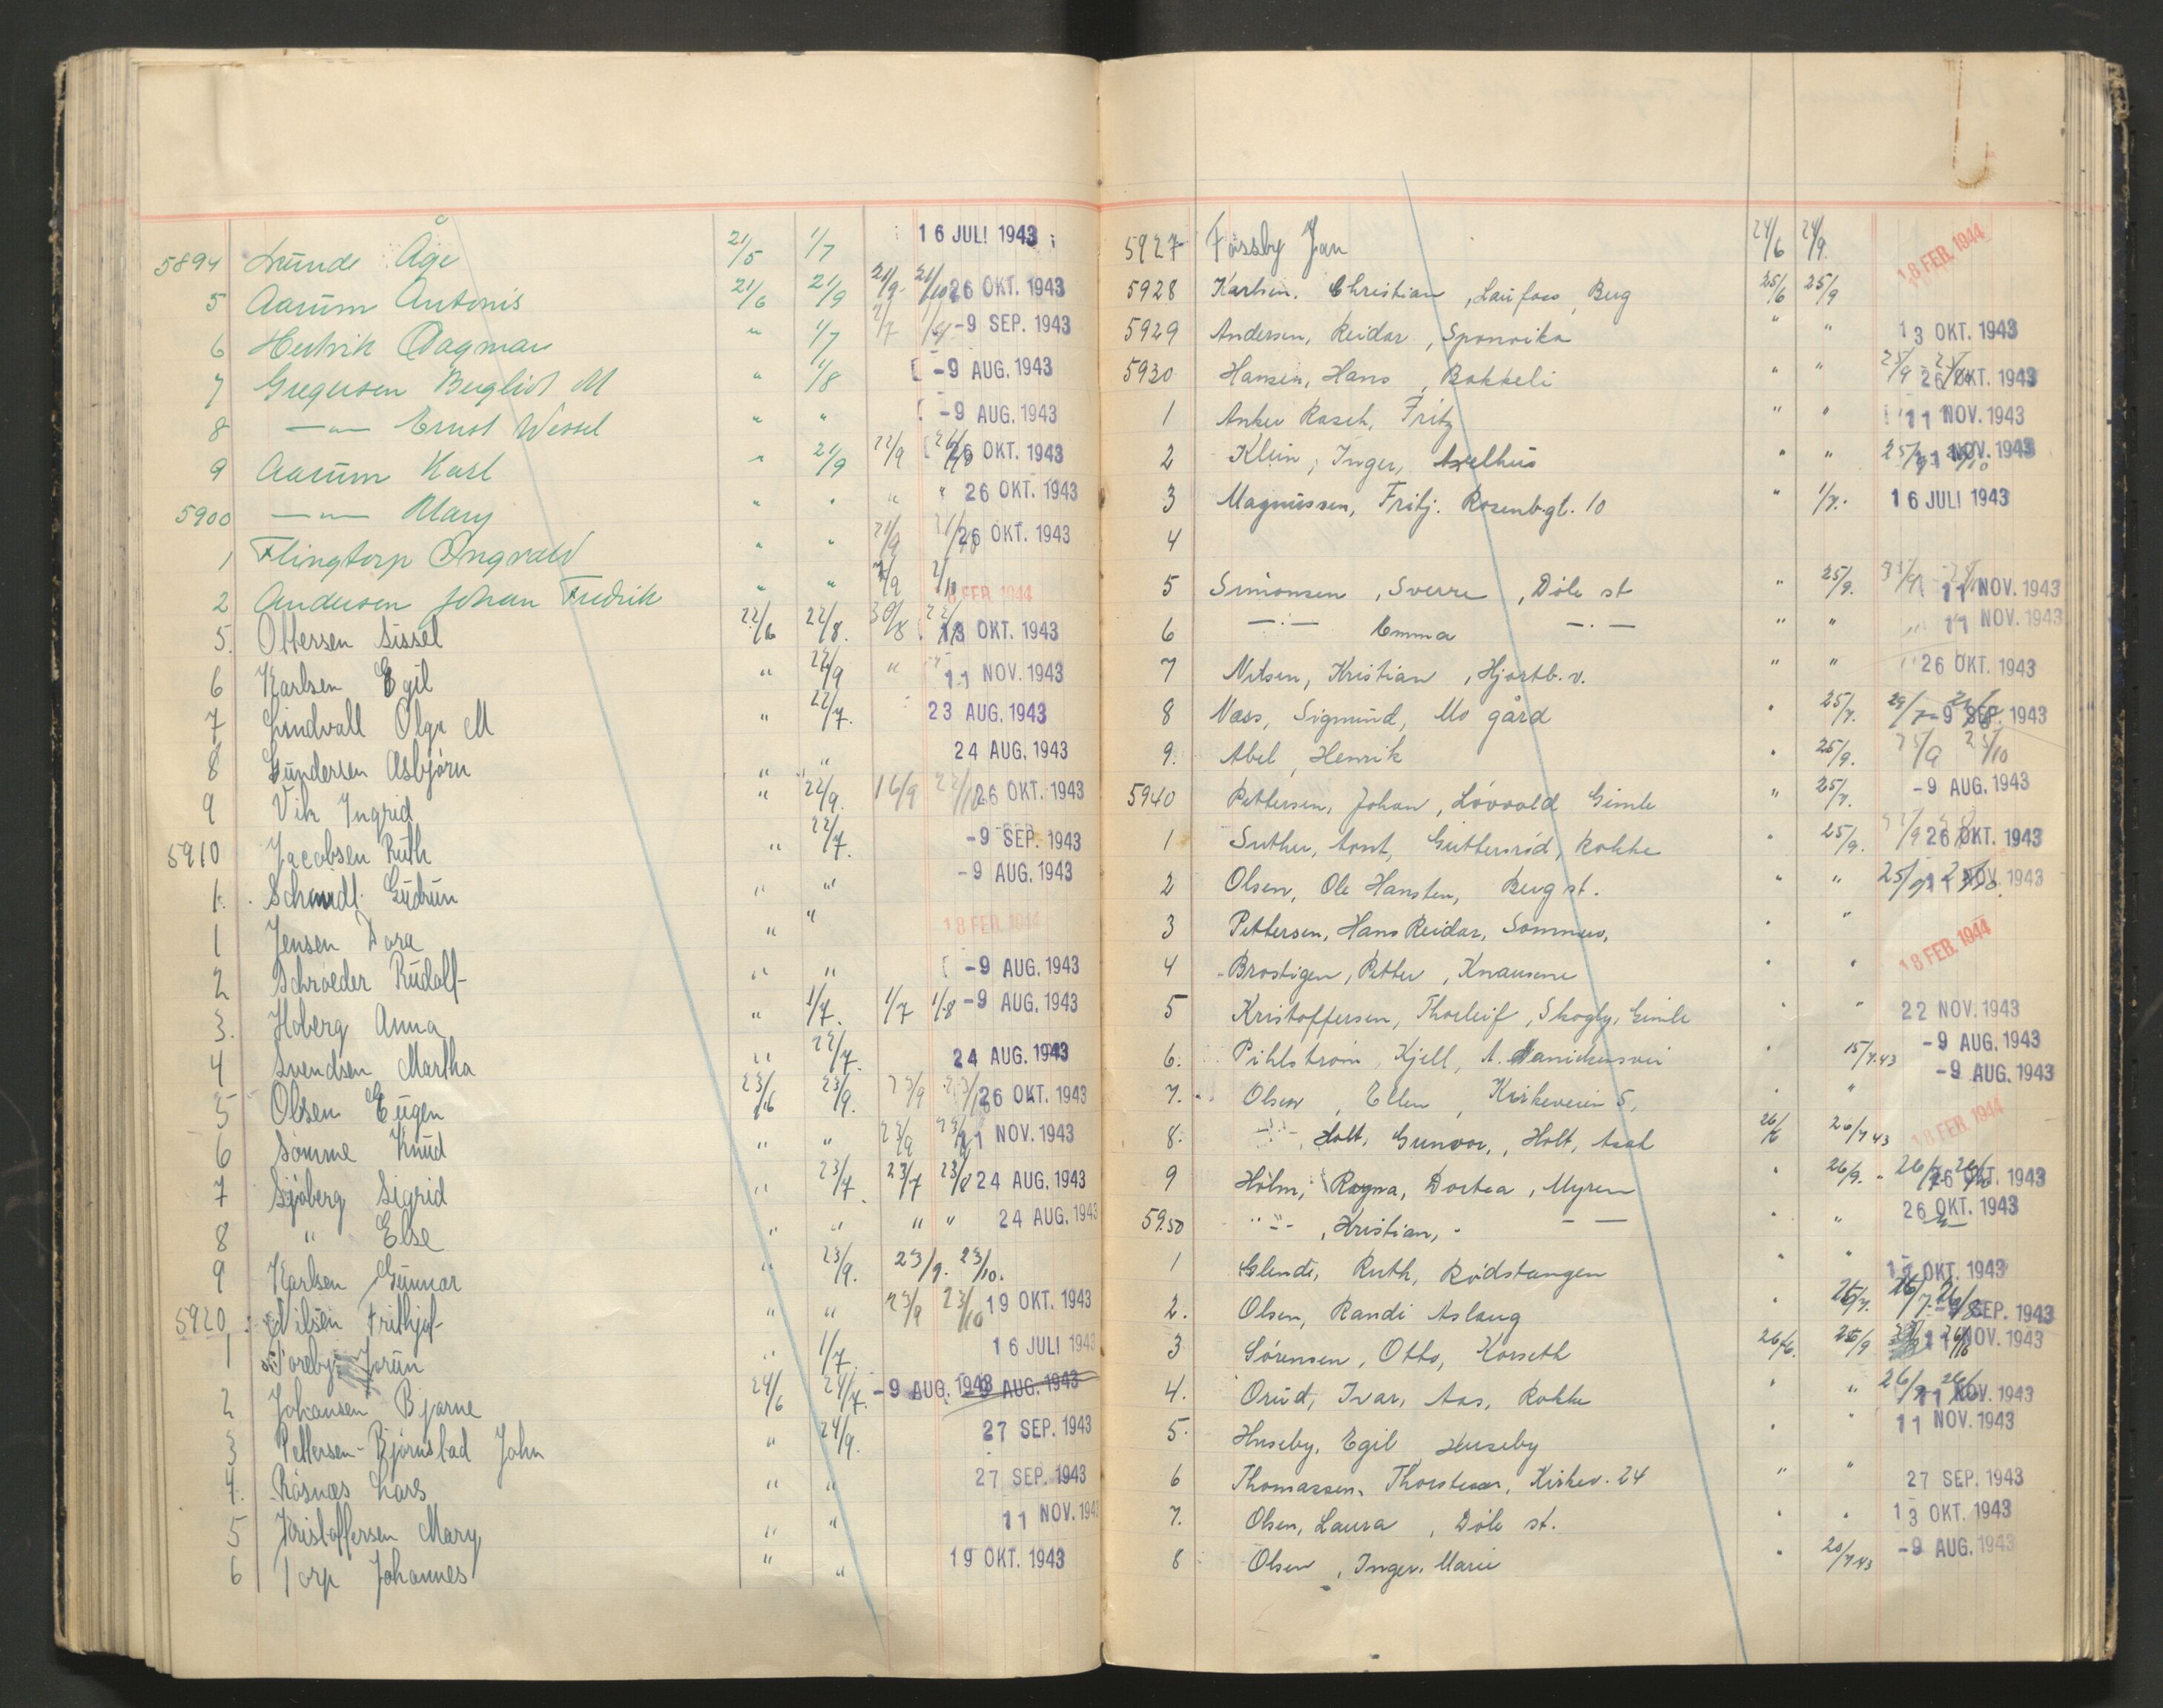 5894 Lunde Åge 21/5 1/7 16 JULI 1943
5 Aarum Antonis 21/6 21/9 21/9 21/10 26 OKT. 1943
6 Henrik Dagmar " 1/7 -9 SEP. 1943
7 Gregersen Bergliot M " 1/8 -9 AUG. 1943
8 —"— Ernst Wessel " " -9 AUG. 1943
9 Aarum Karl " 21/9 22/9 26 OKT. 1943
5900 —"— Mary " " " " 26 OKT. 1943
1 Flingtorp Ingvald " " 21/9 26 OKT. 1943
2 Andersen Johan Fredrik " " FEB. 1944
5. Ottersen Sissel 22/6 22/8. 30/8 13 OKT. 1943
6 Karlsen Egil " 22/9 " 11 NOV. 1943
7 Lindvall Olga M " 22/7. 23 AUG. 1943
8 Gundersen Asbjørn " " 24 AUG. 1943
9 Vik Ingrid " 22/9. 16/9 22/10 26 OKT. 1943
5910 Jacobsen Ruth " 22/7. -9 SEP. 1943
1. Schmidt Gudrun " " -9 AUG. 1943
1 Jensen Dora " " 18 FEB. 1944
2 Schrøeder Rudolf " " -9 AUG. 1943
3. Hoberg Anna " 1/7. 1/7 1/8 -9 AUG. 1943
4 Svendsen Martha " 22/7. 24 AUG. 1943
5 Olsen Eugen 23/6 23/9. 23/9 26 OKT. 1943
6 Sømme Knud " " 23/9 11 NOV. 1943
7 Sjøberg Sigrid " 23/7. 23/7 23/8 24 AUG. 1943
8 " Else " " " " 24 AUG. 1943
9 Karlsen Gunnar " 23/9. 23/9. 23/10.
5920 Nilsen Frithjof " " 23/9 23/10 19 OKT. 1943
1 Toreby Jorun " 1/7. 16 JULI 1943
2 Johansen Bjarne 24/6 24/7. -9 AUG. 1943 -9 AUG. 1943
3 Pettersen-Bjørnstad John " 24/9. 27 SEP. 1943
4. Råsnæs Lars " " 27 SEP. 1943
5 Kristoffersen Mary " " 11 NOV. 194
6 Torp Johannes " " 19 OKT. 1943
5927 Fossby Jan 24/6 24/9. 18 FEB. 1944
5928 Karlsen. Christian , Laufoss, Berg 25/6 25/9
5929 Andersen, Reidar , Sponvika " " 13 OKT. 1943
5930 Hansen, Hans , Bakkeli " " 25/9 26 OKT. 1943
1 Anker Rasch, Fritz " " 11 NOV. 1943
2 Klein, Inger, Axelhus " " 11 NOV. 1943
3 Magnussen, Fritj. Rosenb.gt. 10 " 1/7. 16 JULI 1943
4
5 Simonsen , Sverre , Døle st " 25/9. 11 NOV. 1943
6 —.— Emma —.— " " 11 NOV. 1943
7 Nilsen, Kristian , Hjortb.v. " " 26 OKT. 1943
8 Næss, Sigmund, Mo gård " 25/7. -9 SEP. 1943
9. Abel, Henrik " 25/9. 25/9 25/10
5940 Pettersen, Johan, Løvvold Gimle " 25/7. -9 AUG. 1943
1 Suther, Arnt, Guttersrød, Rokke " 25/9. 26 OKT. 1943
2 Olsen, Ole Hansten, Berg st. " " 11 NOV. 1943
3 Pettersen, Hans Reidar, Sommerv. " " 18 FEB. 1944
4 Brostigen, Petter, Knausene " "
5 Kristoffersen, Thorleif, Skogly, Gimle " " 22 NOV. 1943
6. Pihlstrøm, Kjell, 15/7.43 -9 AUG. 1943
7. Olsen , Ellen , Kirkeveien 5, " " -9 AUG. 1943
8. Holt, Gunvor, , Holt, Asak 26/6 26/7 43 18 FEB. 1944
9 Holm, Ragna, Dortea, Myren " 26/9. 26 OKT. 1943
5950 " - , Kristian, - — — " " 26 OKT. 1943
1 Glende, Ruth, Rødstangen " " OKT. 1943
2. Olsen, Randi Aslaug " 26/7. SEP. 1943
3 Sørensen, Otto, Korseth 26/6. 26/9 NOV. 1943
4. Orud, Ivar, Aas, Rokke " " 11 NOV. 1943
5. Huseby, Egil Huseby " " 11 NOV. 1943
6 Thomassen, Kirkev. 24 " " 27 SEP. 1943
7. Olsen, Laura , Døle st. " " 13 OKT. 1943
8 Olsen , Inger. Marie " -9 AUG. 1943